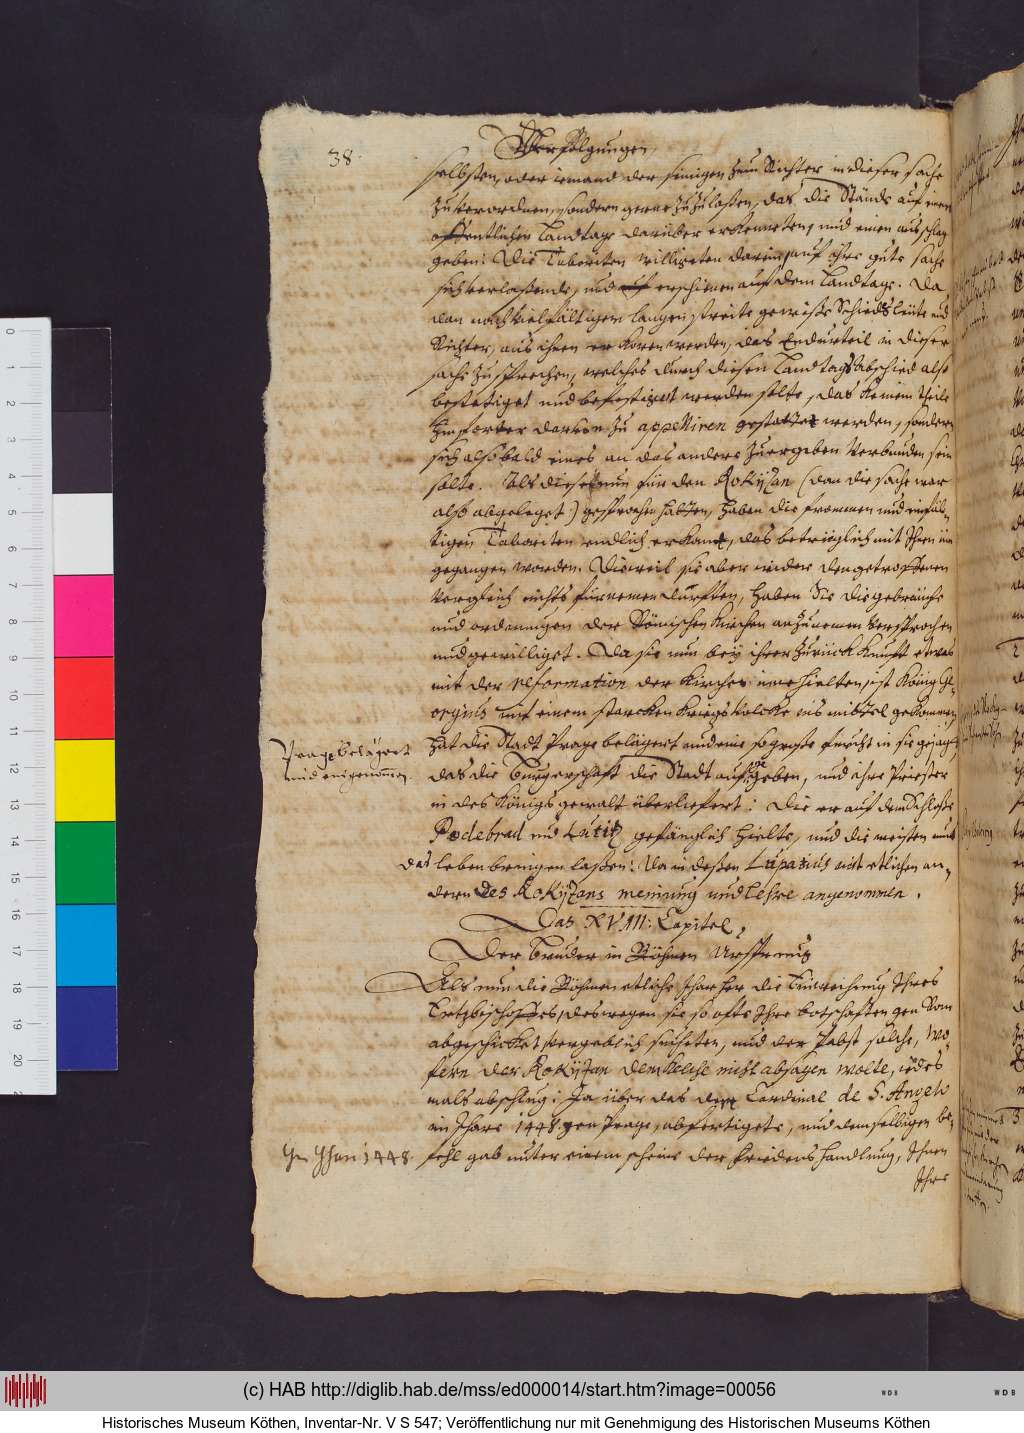 38.
Verfolgungen.
selbsten, oder iemand der seinigen zum Richter in dieser sache
zu verordnen, sondern gerne zuzulaßen, das die Stände auf einem
offentlichen Landtage darüber erkenneten, und einen ausschlag
geben: Die Taboriten willigeten darein, auf ihre gute sache
sich verlaßende, und erschienen auf dem Landtage. Da
dan nach vielfältigem langen streite gewiße Schiedsleute und
Richter, aus ihnen erkoren werden, das Endurteil in dieser
sache zu sprechen, welches durch diesen Landtags Abschied also
bestetiget und befestiget werden solte, das keinem theile
hinforder darvon zu appelliren gestattet werden, sondern
sich alsobald eines an das andere zuergeben verbunden sein
solte. Als diese nun für den Rokyzan (dan die sache war
also abgeleget) gesprochen hatten, haben die frommen und einfäl-
tigen Taboriten endlich erkant, das betrüglich mit Ihnen üm
gegangen worden. Dieweil sie aber wider den getroffenen
vergleich nichts fürnemen durften, haben Sie die gebräuche
und ordnungen der Römischen Kirchen anzunemen versprochen
und gewilliget. Da sie nun bey ihrer zurückkunft etwas
mit der reformation der Kirchen inne hielten, ist König Ge-
orgius mit einem starcken Kriegsvolcke ins mittel gekommen,
Prage belägert
und eingenommen.
hat die Stadt Prage belägert und eine so große furcht in sie gejagt,
das die Burgerschaft die Stadt aufgegeben, und ihre Priester
in des Königs gewalt überliefert: Die er auf dem Schloße
Podebrad und Lutitz gefänglich hielte, und die meisten ümb
das leben bringen laßen: Da indeßen Lupatius mit etlichen an-
dern des Rokyzans meinung und Lehre angenommen.
Das XVIII: Capitel,
Der Bruder in Böhmen Ursprung
Als nun die Böhmen etliche Jhar her die Einweihung Ihres
Ertzbischoffes, deswegen sie so ofte Ihre botschaften gen Rom
abgeschicket, vergeblich sucheten, und der Pabst solche, wo-
fern der Rokyzan dem Kelche nicht absagen wolte, iedes
mals abschlug: Ja über das den Cardinal de S. Angelo
im Jhare 1448. gen Prage, abfertigete, und demselbigen be-
Im Jhare 1448.
fehl gab unter einem scheine der friedens handlung, Ihnen
Ihre
0
1
2
3
4
5
6
7
8
9
10
11
12
13
14
15
16
17
18
19
20
(c) HAB http://diglib.hab.de/mss/ed000014/start.htm?image=00056
WDB
WDB
Historisches Museum Köthen, Inventar-Nr. V S 547; Veröffentlichung nur mit Genehmigung des Historischen Museums Köthen